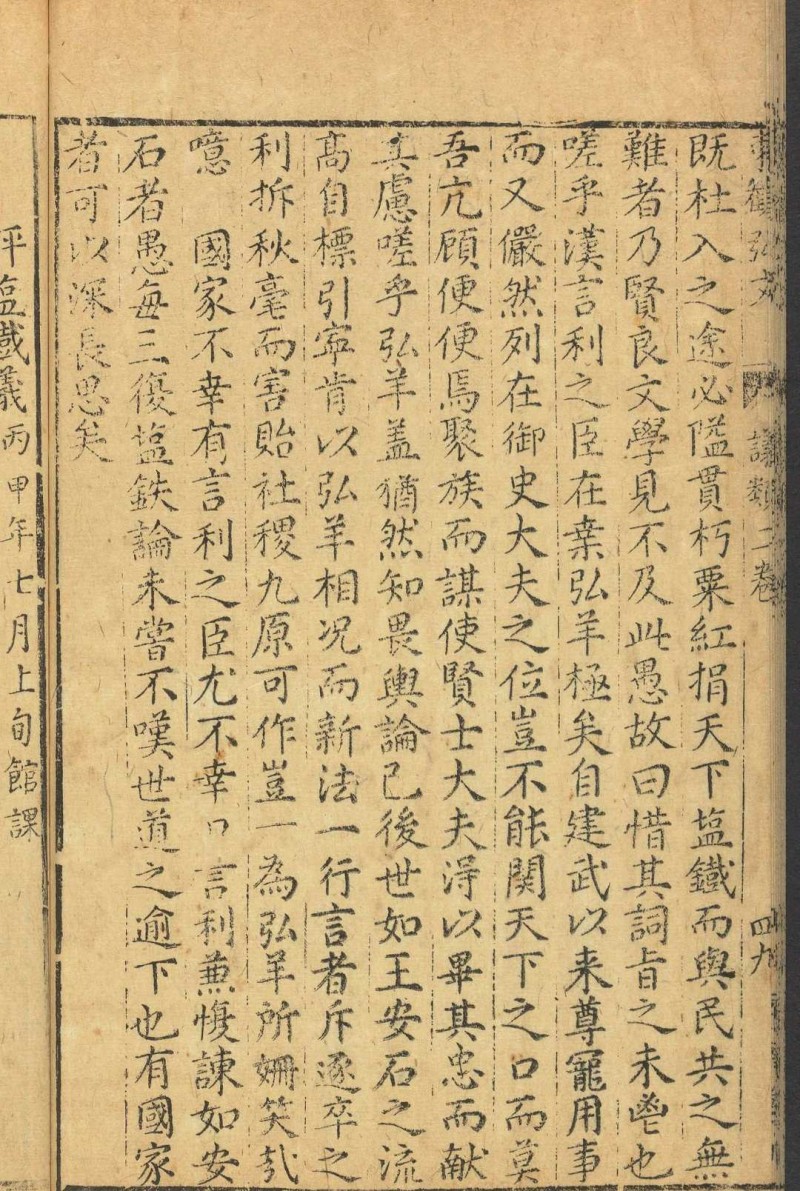 議類二卷 四九
既杜入之途必隘貫朽粟紅捐天下塩鐵而與民共之無
難者乃賢良文學見不及此愚故曰惜其詞旨之未鬯也
嗟乎漢言利之臣在桒弘羊極矣自建武以来尊寵用事
而又儼然列在御史大夫之位豈不能関天下之口而莫
吾亢顧便便焉聚族而謀使賢士大夫淂以畢其忠而献
其慮嗟乎弘羊盖猶然知畏輿論已後世如王安石之流
髙自標引寕肯以弘羊相况而新法一行言者斥逐卒之
利拆秋毫而害貽社稷九原可作豈一為弘羊所姍笑㢤
噫 國家不幸有言利之臣尤不幸 言利蒹愎諫如安
石者愚毎三復塩鉄論未甞不嘆世道之逾下也有國家
者可以深長思矣
坪塩鐵議 丙甲年七月上旬館課